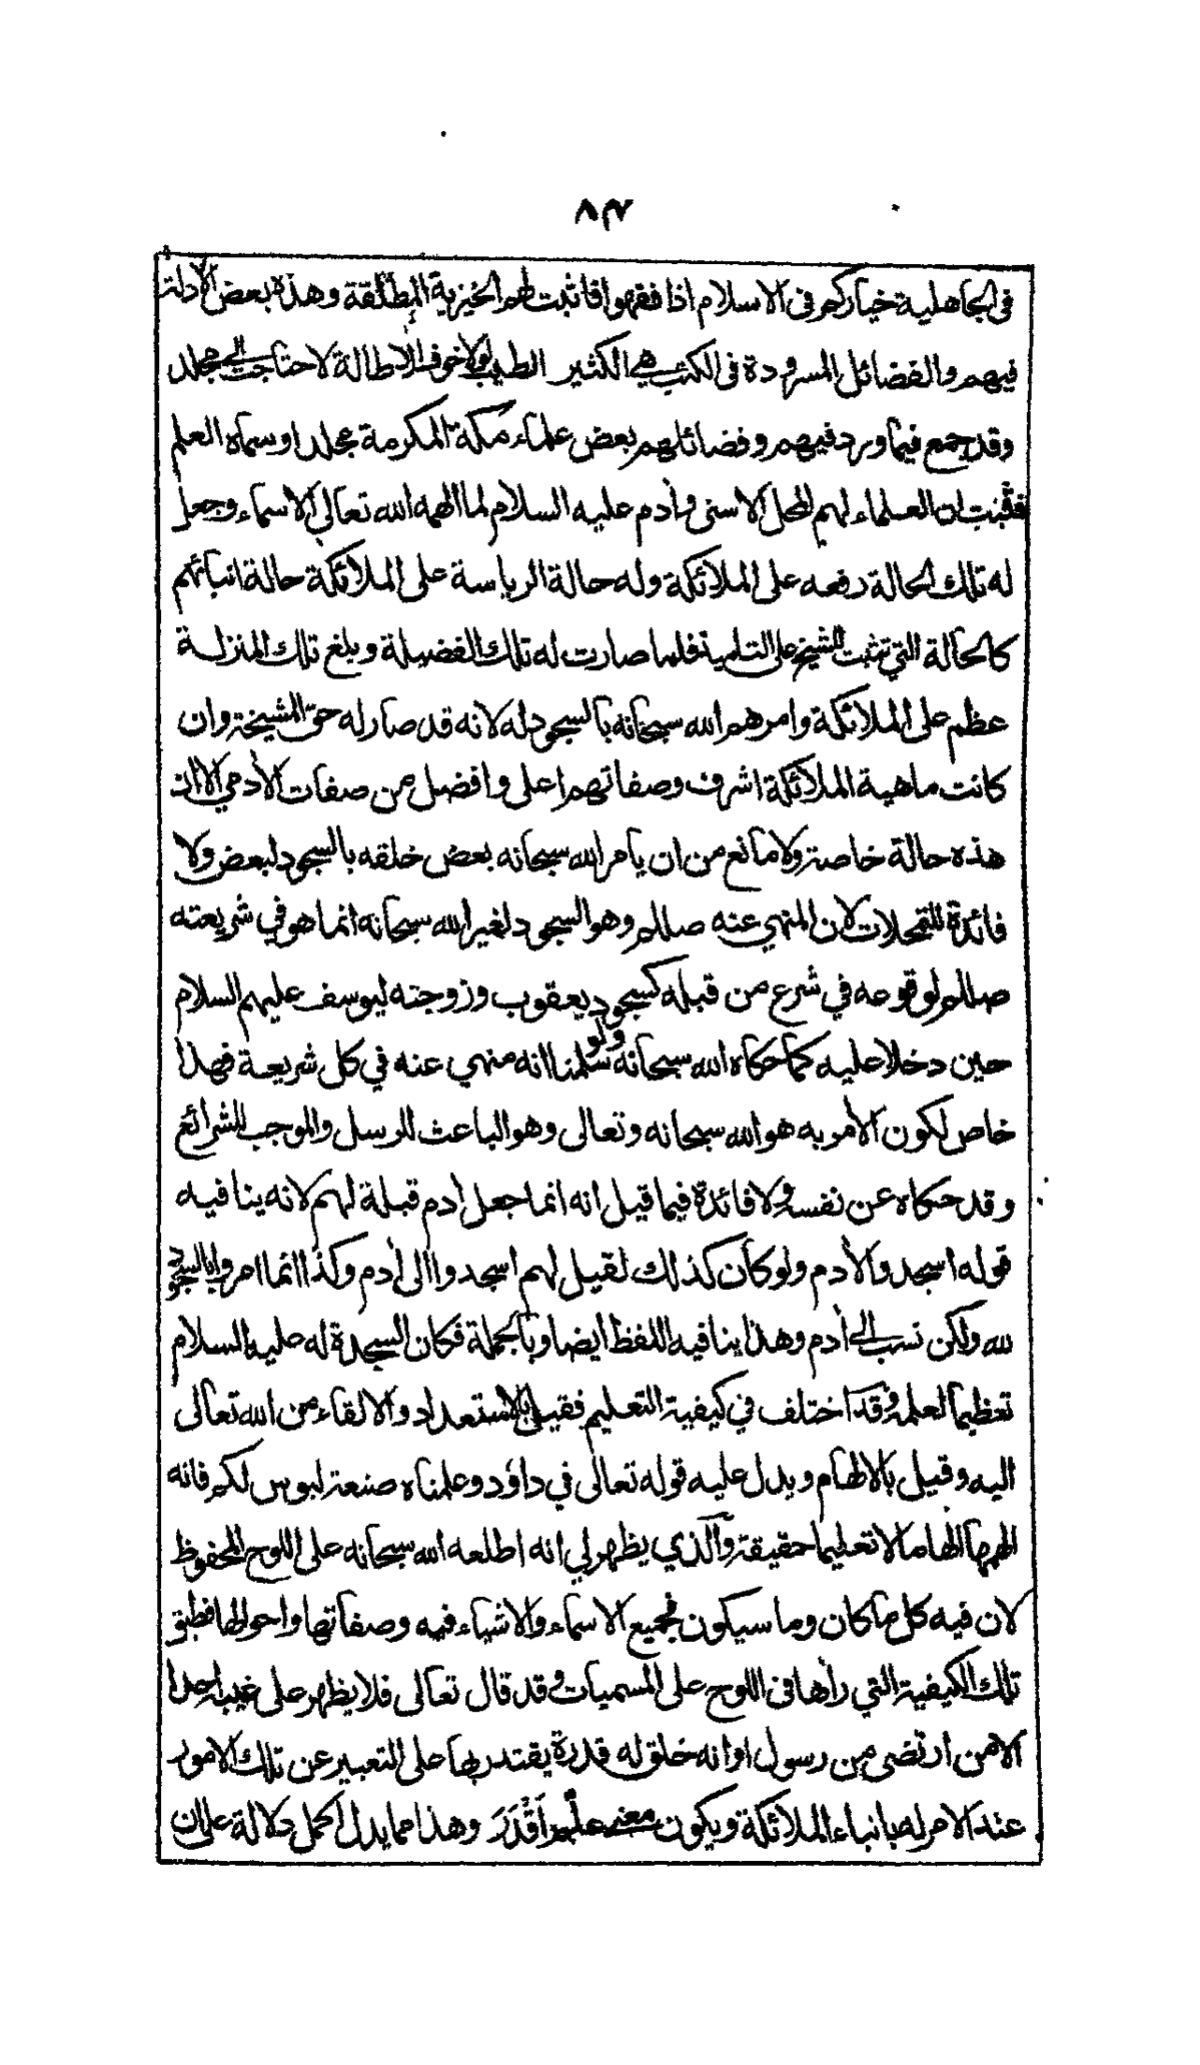 ٨٣
فى الجاهلية خياركم فى الاسلام اذا فقهوا فاثبت لهم الخيرية المطلقة وهذه بعض الادلة
فيهم والفضائل المسرودة فى الكتب هي الكثير الطيب ولولا خوف الاطالة لاحتاجت الى مجلد
وقد جمع فيما ورد فيهم وفضائلهم بعض علماء مكة المكرمة مجلدا وسماه العلم
فثبت ان العلماء لهم المحل الاسنى وأدم عليه السلام لما الهمه الله تعالى الاسماء وجعل
له تلك الحالة رفعه على الملائكة وله حالة الرياسة على الملائكة حالة انبائهم
كالحالة التي تثبت للشيخ على التلميذ فلما صارت له تلك الفضيلة وبلغ تلك المنزلة
عظم على الملائكة وامرهم الله سبحانه بالسجود له لانه قد صار له حق المشيخة وان
كانت ماهية الملائكة اشرف وصفاتهم اعلى وافضل من صفات الأدمي الا ان
هذه حالة خاصة ولا مانع من ان يامر الله سبحانه بعض خلقه بالسجود لبعض ولا
فائدة للتمحلات لان المنهي عنه صللم وهو السجود لغير الله سبحانه انما هو في شريعته
صللم لوقوعه في شرع من قبله كسجود يعقوب وزوجته ليوسف عليهم السلام
حين دخلا عليه كما حكاه الله سبحانه ولو سلمنا انه منهي عنه في كل شريعة فهذا
خاص لكون الأمر به هو الله سبحانه وتعالى وهو الباعث للرسل والموجب للشرائع
وقد حكاه عن نفسه ولا فائدة فيما قيل انه انما جعل أدم قبلة لهم لانه ينافيه
قوله اسجدوا لأدم ولو كان كذلك لقيل لهم اسجدوا الى أدم وكذا انما امروا بالسجود
لله ولكن نسب الى أدم وهذا ينافيه اللفظ ايضا وبالجملة فكان السجدة له عليه السلام
تعظيما لعلمه وقد اختلف في كيفية التعليم فقيل بالاستعداد والالقاء من الله تعالى
اليه وقيل بالالهام ويدل عليه قوله تعالى في داؤد وعلمناه صنعة لبوس لكم فانه
الهمها الهاما لا تعليما حقيقة والذي يظهر لي انه اطلعه الله سبحانه على اللوح المحفوظ
لان فيه كل ما كان وما سيكون فجميع الاسماء والاشياء فيه وصفاتها واحوالها فطبق
تلك الكيفية التي رأها فى اللوح على المسميات وقد قال تعالى فلا يظهر على غيبه احدا
الا من ارتضى من رسول او انه خلق له قدرة يقتدر بها على التعبير عن تلك الامور
عند الامر له بانباء الملائكة ويكون معنى علم اَقْدَرَ وهذا مما يدل اكمل دلالة على ان